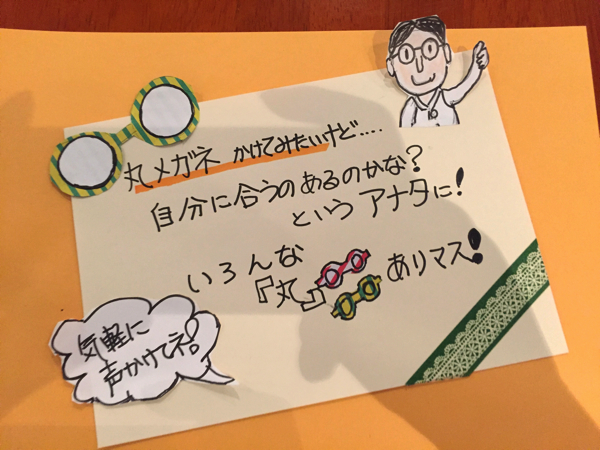 丸メガネ かけてみたいけど....
自分に合うのあるのかな?
という アナタに!
いろんな
『丸』 ありマス!
気軽に
声かけてネ!